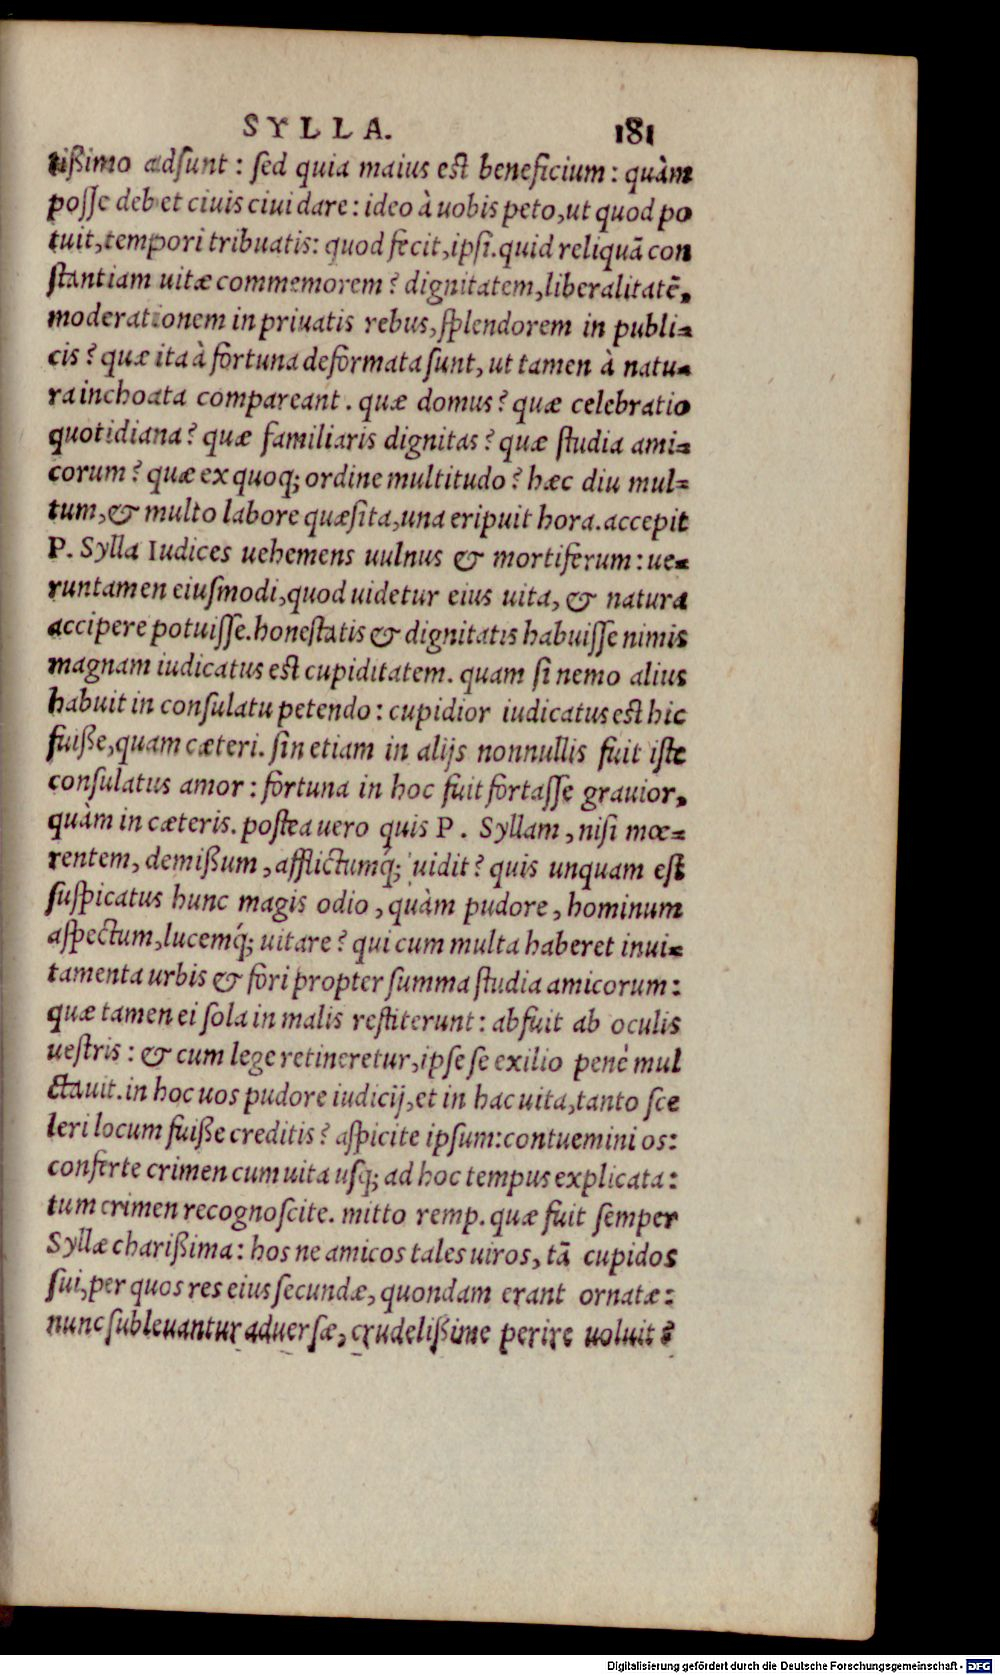 SYLLA. 181
tißimo adsunt : sed quia maius est beneficium : quàm
posse debet ciuis ciui dare : ideo à uobis peto, ut quod po
tuit, tempori tribuatis: quod fecit, ipsi. quid reliquā con
stantiam uitæ commemorem ? dignitatem, liberalitatē,
moderationem in priuatis rebus, splendorem in publi=
cis ? quæ ita à fortuna deformata sunt, ut tamen à natu=
ra inchoata compareant . quæ domus ? quæ celebratio
quotidiana ? quæ familiaris dignitas ? quæ studia ami=
corum ? quæ ex quoq; ordine multitudo ? hæc diu mul=
tum, & multo labore quæsita, una eripuit hora. accepit
P. Sylla Iudices uehemens uulnus & mortiferum : ue=
runtamen eiusmodi, quod uidetur eius uita, & natura
accipere potuisse. honestatis & dignitatis habuisse nimis
magnam iudicatus est cupiditatem. quam si nemo alius
habuit in consulatu petendo : cupidior iudicatus est hic
fuiße, quam cæteri. sin etiam in alijs nonnullis fuit iste
consulatus amor : fortuna in hoc fuit fortasse grauior,
quàm in cæteris. postea uero quis P . Syllam , nisi mœ=
rentem, demißum , afflictumq́; uidit ? quis unquam est
suspicatus hunc magis odio , quàm pudore , hominum
aspectum, lucemq́; uitare ? qui cum multa haberet inui=
tamenta urbis & fori propter summa studia amicorum :
quæ tamen ei sola in malis restiterunt : abfuit ab oculis
uestris : & cum lege retineretur, ipse se exilio penè mul
ctauit. in hoc uos pudore iudicij, et in hac uita, tanto sce
leri locum fuiße creditis ? aspicite ipsum: contuemini os:
conferte crimen cum uita usq; ad hoc tempus explicata :
tum crimen recognoscite. mitto remp. quæ fuit semper
Syllæ charißima : hos ne amicos tales uiros, tā cupidos
sui, per quos res eius secundæ, quondam erant ornatæ :
nunc subleuantur aduersæ, crudelißime perire uoluit ?
Digitalisierung gefördert durch die Deutsche Forschungsgemeinschaft - DFG